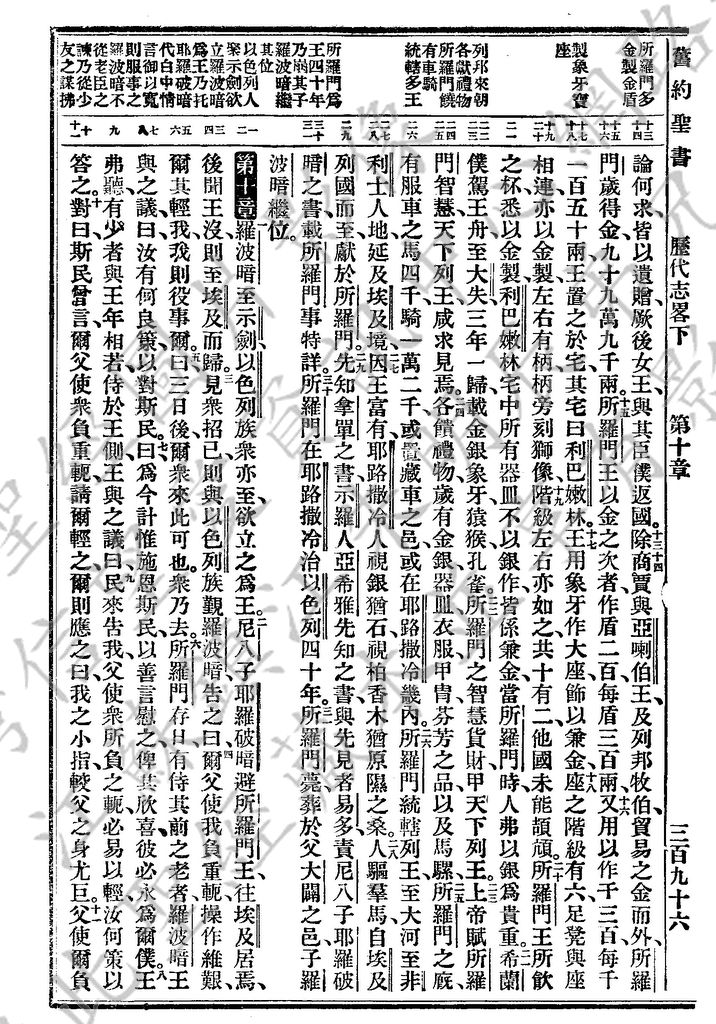 舊約聖書 歷代志畧下 第十章 三百九十六
所羅門多
金製金盾
製象牙寶
座
列邦來朝
各獻禮物
所羅門饒
有車騎
統轄多王
所羅門爲
王四十年
乃崩其子
羅波暗繼
其位
以色列人
聚示劍欲
立羅波暗
爲王乃托
耶羅破暗
代白中情
言御以寬
則服事之
羅波暗不
從老臣之
諫乃從少
友之謀拂
論何求、皆以遺贈、厥後女王與其臣僕返國。除商賈與亞喇伯王、及列邦牧伯、貿易之金而外、所羅
門歲得金九十九萬九千兩。所羅門王以金之次者作盾二百、每盾三百兩、又用以作干三百、每干
一百五十兩、王置之於宅、其宅曰利巴嫩林。王用象牙作大座、飾以兼金、座之階級有六、足凳與座
相連、亦以金製、左右有柄、柄旁刻獅像、階級左右亦如之、共十有二、他國未能頡頏。所羅門王所飲
之杯、悉以金製、利巴嫩林宅中所有器皿、不以銀作、皆係兼金、當所羅門時、人弗以銀爲貴重。希蘭
僕駕王舟至大失、三年一歸、載金銀象牙猿猴孔雀。所羅門之智慧貨財甲天下列王。上帝賦所羅
門智慧、天下列王咸求見焉、各饋禮物、歲有金銀器皿、衣服甲冑、芬芳之品、以及馬騾。所羅門之廐、
有服車之馬四千、騎一萬二千、或置藏車之邑、或在耶路撒冷畿內。所羅門統轄列王、至大河、至非
利士人地、延及埃及境。因王富有、耶路撒冷人視銀猶石、視柏香木猶原隰之桑。人驅羣馬、自埃及
列國而至、獻於所羅門。先知拿單之書、示羅人亞希雅先知之書、與先見者易多、責尼八子耶羅破
暗之書、載所羅門事特詳。所羅門在耶路撒冷、治以色列四十年。所羅門薨、葬於父大闢之邑、子羅
波暗繼位。
第十章 羅波暗至示劍、以色列族衆亦至、欲立之爲王。尼八子耶羅破暗、避所羅門王、往埃及居焉、
後聞王沒、則至埃及而歸、見衆招已、則與以色列族覲羅波暗、告之曰、爾父使我負重軛、操作維艱、
爾其輕我、我則役事爾。曰、三日後爾衆來此可也。衆乃去。所羅門存日、有侍其前之老者、羅波暗王
與之議曰、汝有何良策、以對斯民。曰、爲今計、惟施恩斯民、以善言慰之、俾其欣喜、彼必永爲爾僕。王
弗聽、有少者與王年相若、侍於王側、王與之議曰、民來告我父使衆所負之軛、必易以輕、汝何策以
答之。對曰、斯民嘗言、爾父使衆負重軛、請爾輕之、爾則應之曰、我之小指、較父之身尤巨。父使爾負